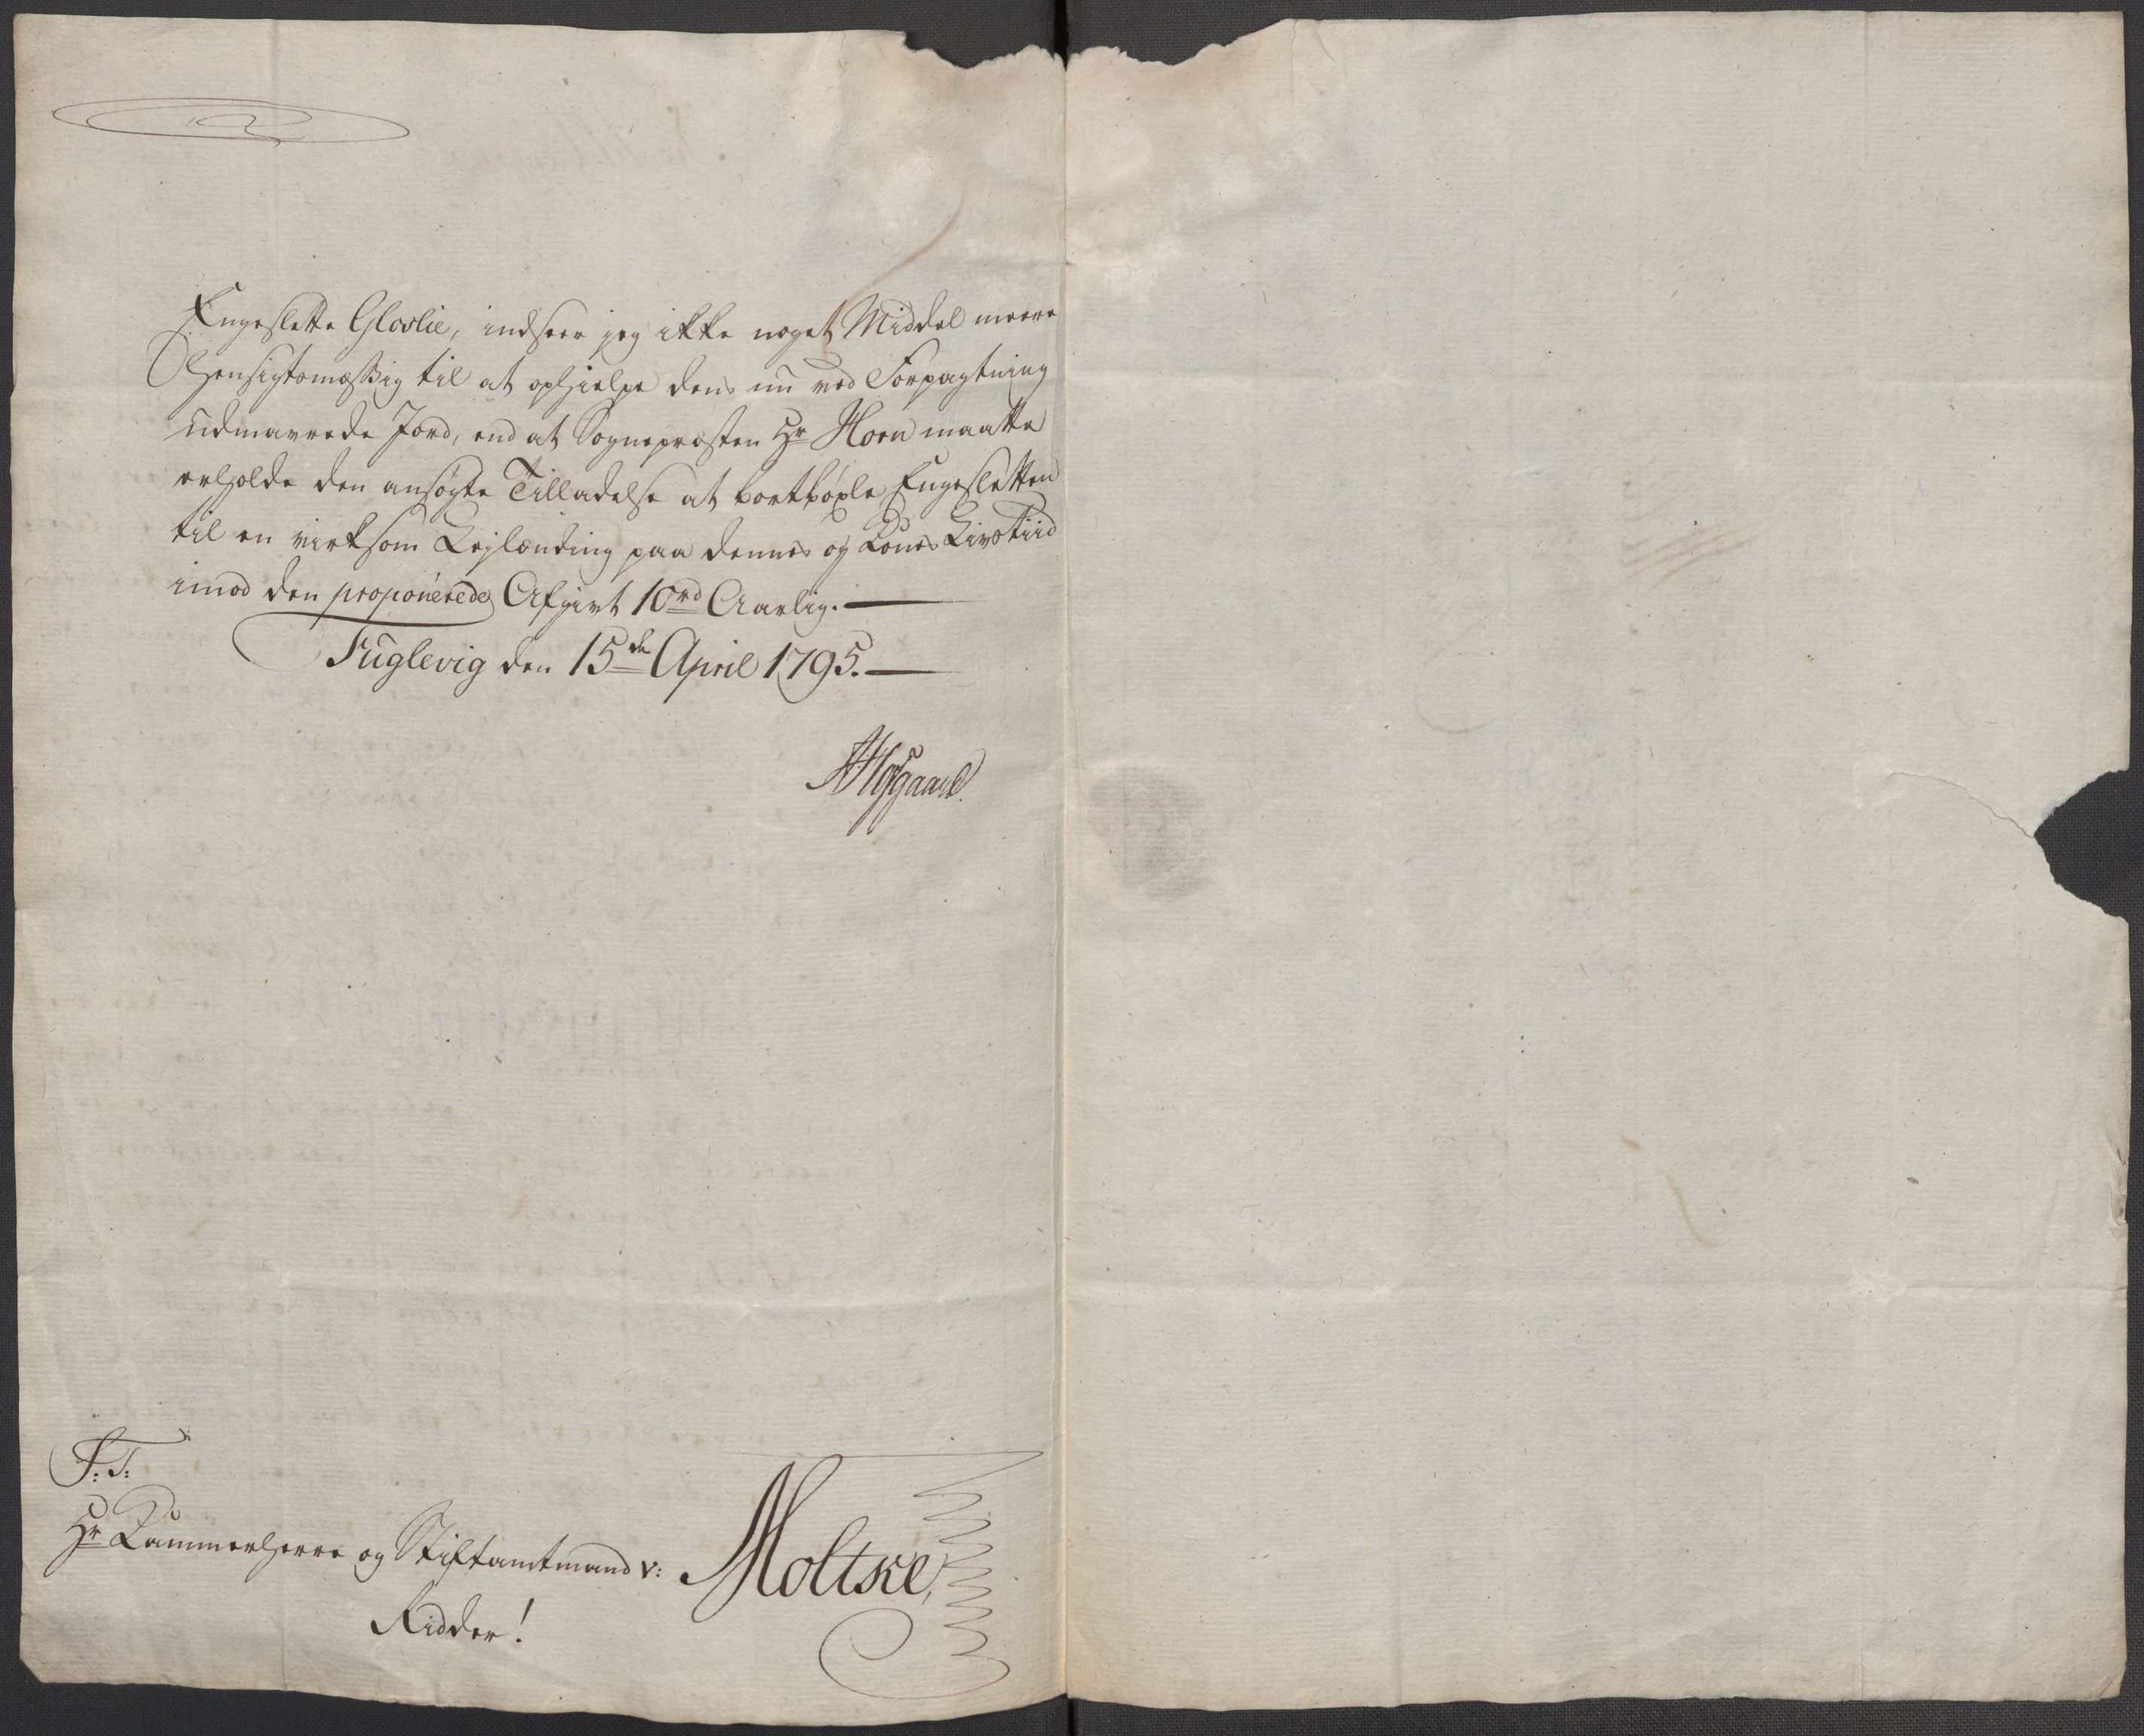 Engeslette Glovlie, indseer jeg ikke noget Middel meere
Hensigtsmæssig til at ophielpe dens nu ved Forpagtning
udmavrede Jord, end at Sognepræsten Hr Horn maatte
erholde den ansøgte Tilladelse at bortbøxle Engesletten
til en virksom Leylænding paa dennes og Kones Livstiid
imod den proponerede Afgivt 10rd Aarlig. —
Fuglevig den 15de April 1795. —
Hofgaard.
S: T:
Hr Kammerherre og Stiftamtmand v: Moltke,
Ridder!